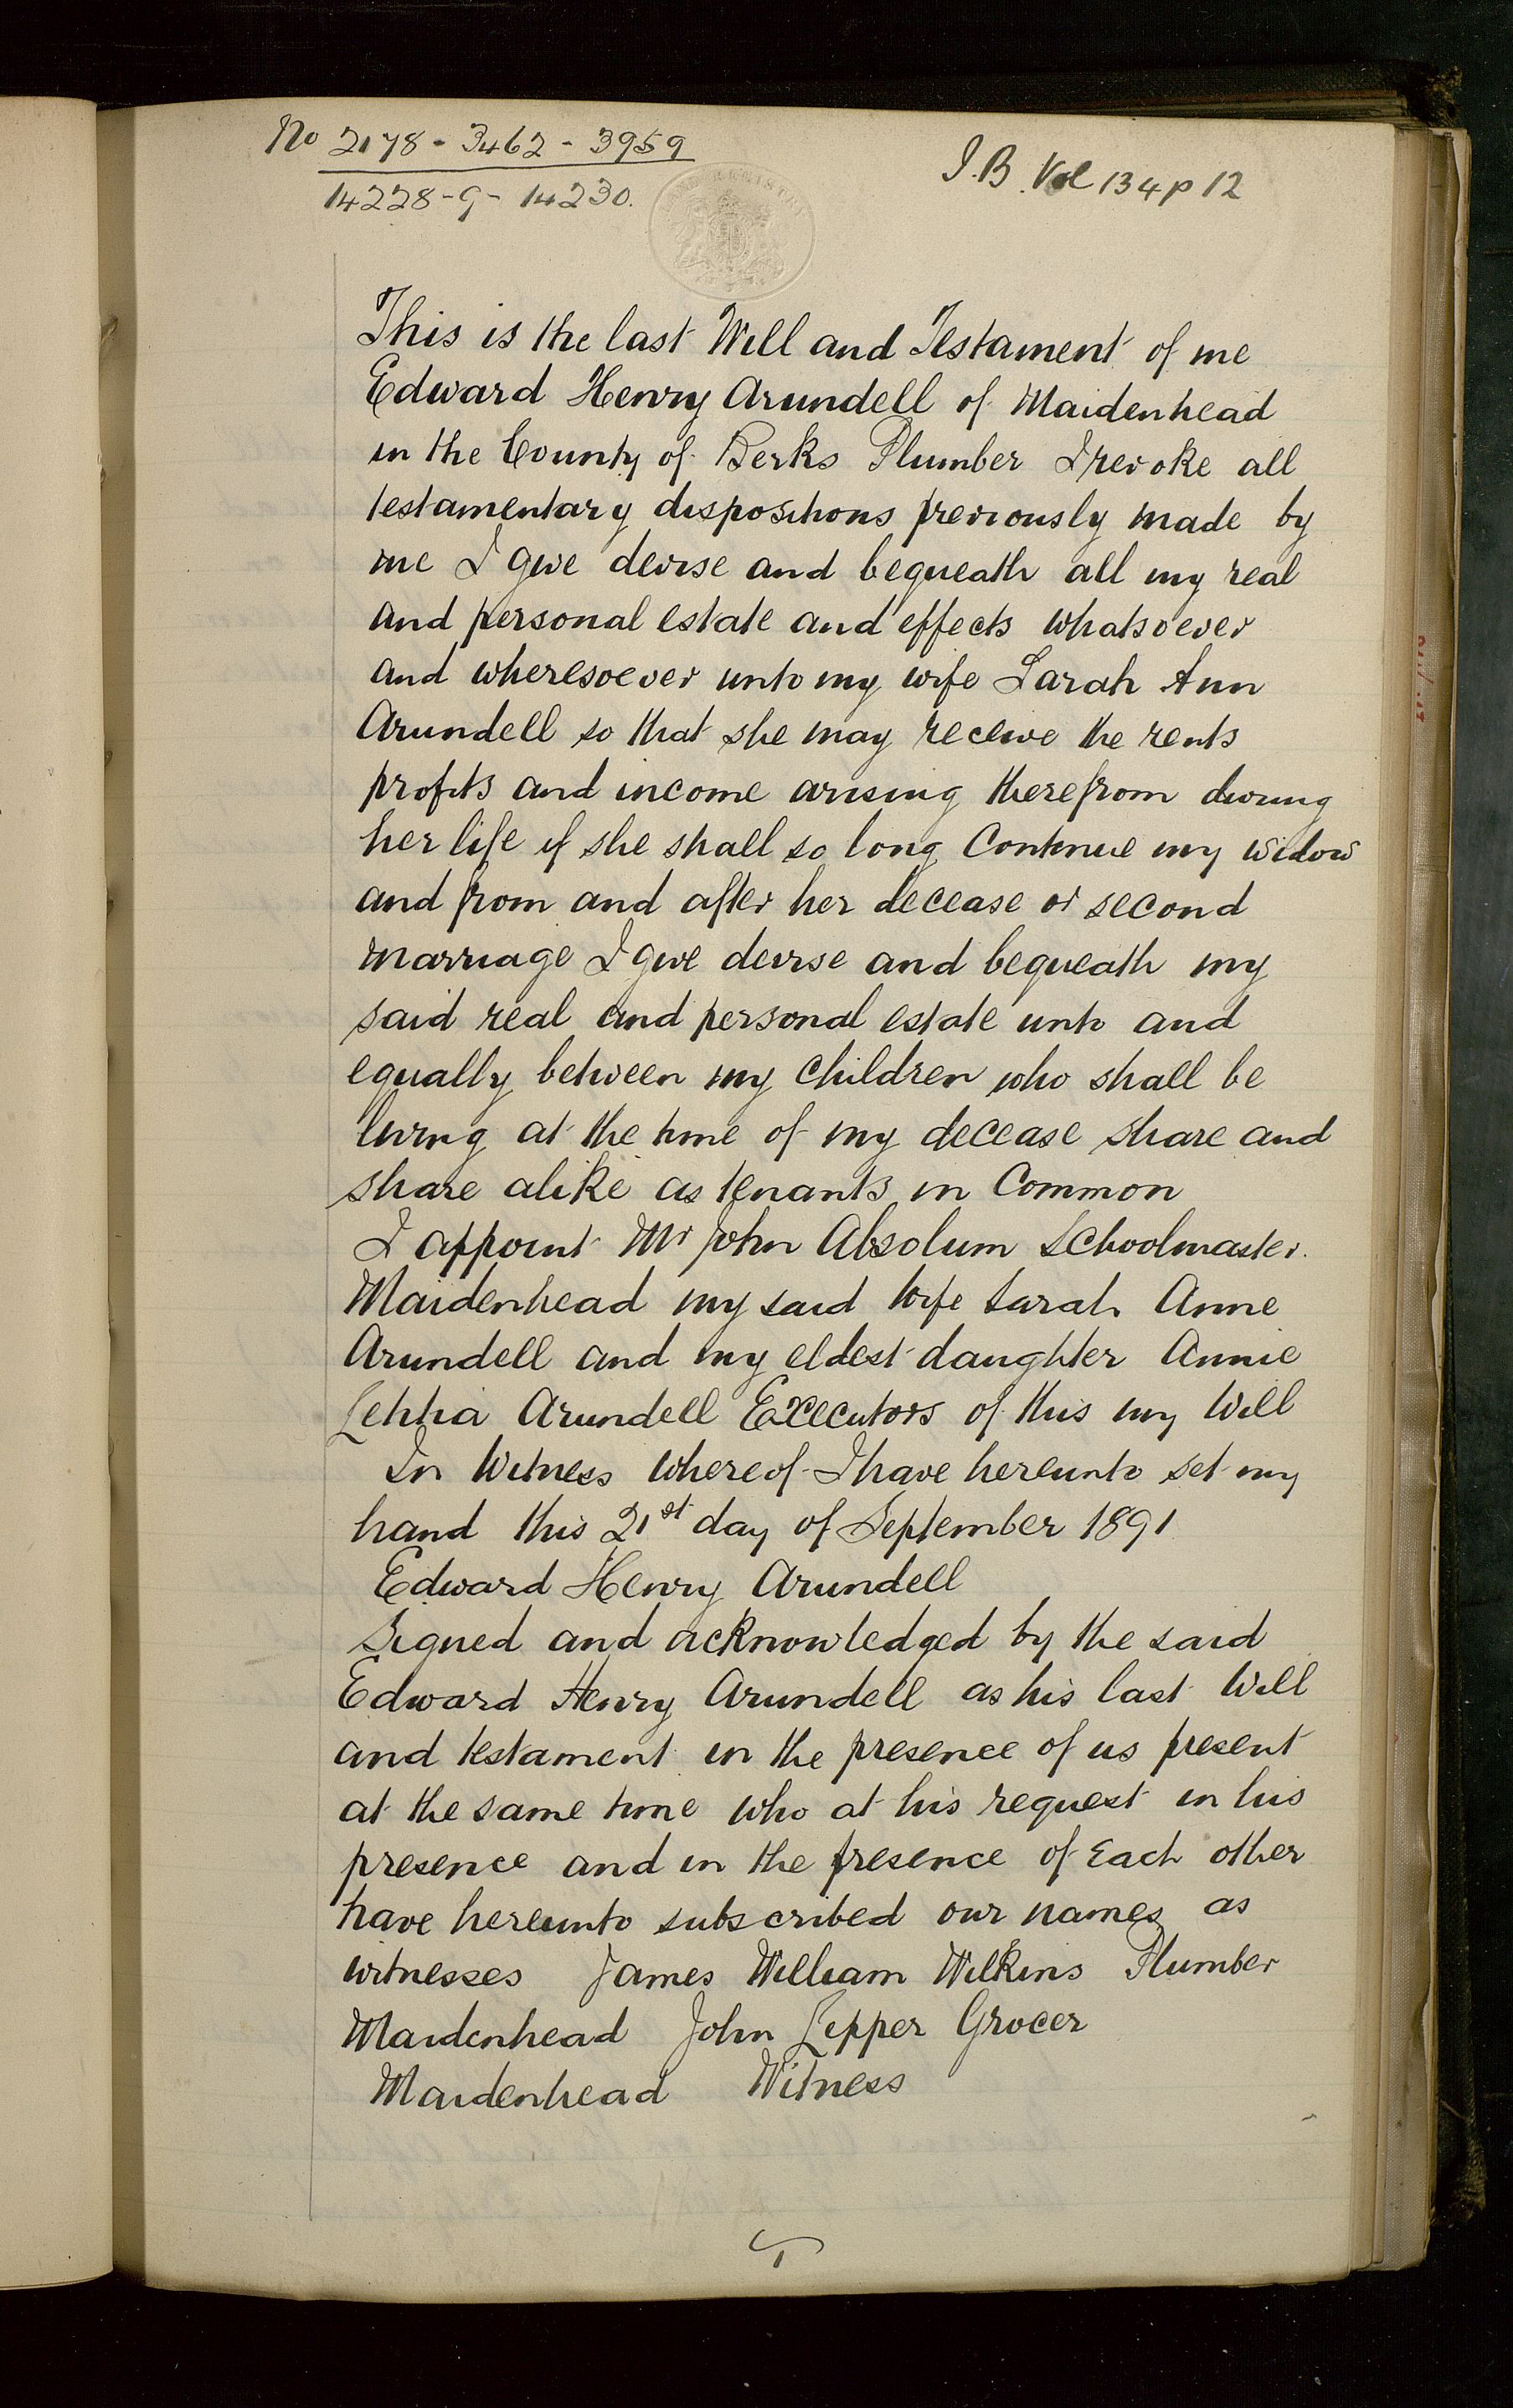 No 2178 - 3462 - 3959
14228-9- 14230.
I.B. Vol 134 p 12
This is the last Will and Testament of me
Edward Henry Arundell of Maidenhead
in the County of Berks Plumber I revoke all
testamentary dispositions previously made by
me I give devise and bequeath all my real
and personal estate and effects whatsoever
and wheresoever unto my wife Sarah Ann
Arundell so that she may receive the rents
profits and income arising therefrom during
her life if she shall so long Continue my widow
and from and after her decease or second
marriage I give devise and bequeath my
said real and personal estate unto and
equally between my children who shall be
living at the time of my decease share and
share alike as tenants in Common
I appoint Mr John Absolum Schoolmaster.
Maidenhead my said Wife Sarah Anne
Arundell and my eldest daughter Annie
Letitia Arundell Executors of this my Will
In Witness whereof I have hereunto set my
hand this 21st day of September 1891
Edward Henry Arundell
Signed and acknowledged by the said
Edward Henry Arundell as his last Will
and testament in the presence of us present
at the same time who at his request in his
presence and in the presence of Each other
have hereunto subscribed our names as
witnesses James William Wilkins Plumber
Maidenhead John Lepper Grocer
Maidenhead Witness